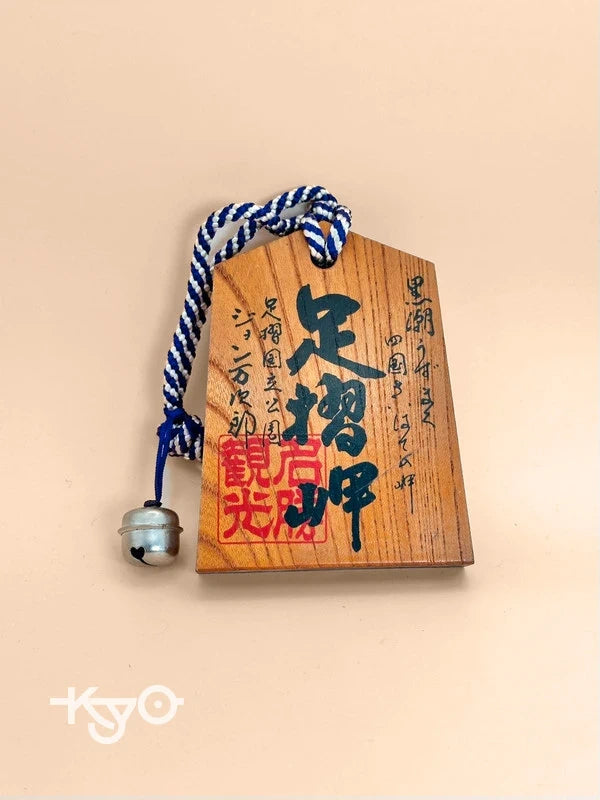 黒潮うずまく
四国さいはての岬
足摺岬
足摺国立公園
ジョン万次郎
名勝
観光
KYO